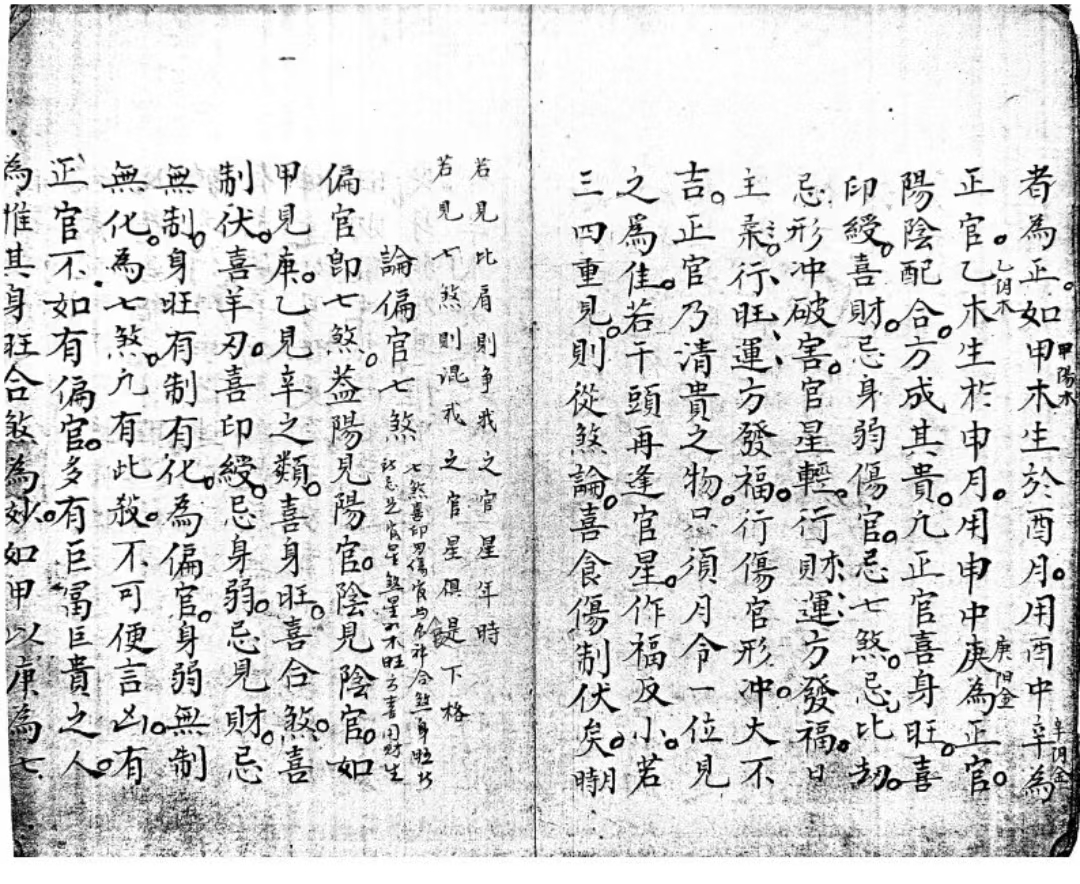 者為正。如甲木生於酉月。用酉中辛為
甲陽木
辛阴金
正官。乙木生於申月。用申中庚為正官。
乙阴木
庚阳金
陽陰配合。方成其貴。凢正官喜身旺。喜
印綬。喜財。忌身弱傷官。忌七煞。忌比劫。
忌形冲破害。官星輕。行財運方發福。日
主柔。行旺運方發福。行傷官形冲。大不
吉。正官乃清貴之物。只須月令一位見
之爲佳。若干頭再逢官星。作福反小。若
三四重見。則從煞論。喜食傷制伏矣。
若見比肩則争我之官星年時
若見七煞則混我之官星俱 下格
論偏官七煞
偏官卽七煞。葢陽見陽官。陰見陰官。如
甲見庚。乙見辛之類。喜身旺。喜合煞。喜
制伏。喜羊刃。喜印綬。忌身弱。忌見財。忌
無制。身旺有制有化。為偏官。身弱無制
無化。為七煞。凢有此殺。不可便言凶。有
正官不如有偏官。多有巨富巨貴之人。
為惟其身旺合煞為妙。如甲以庚為七